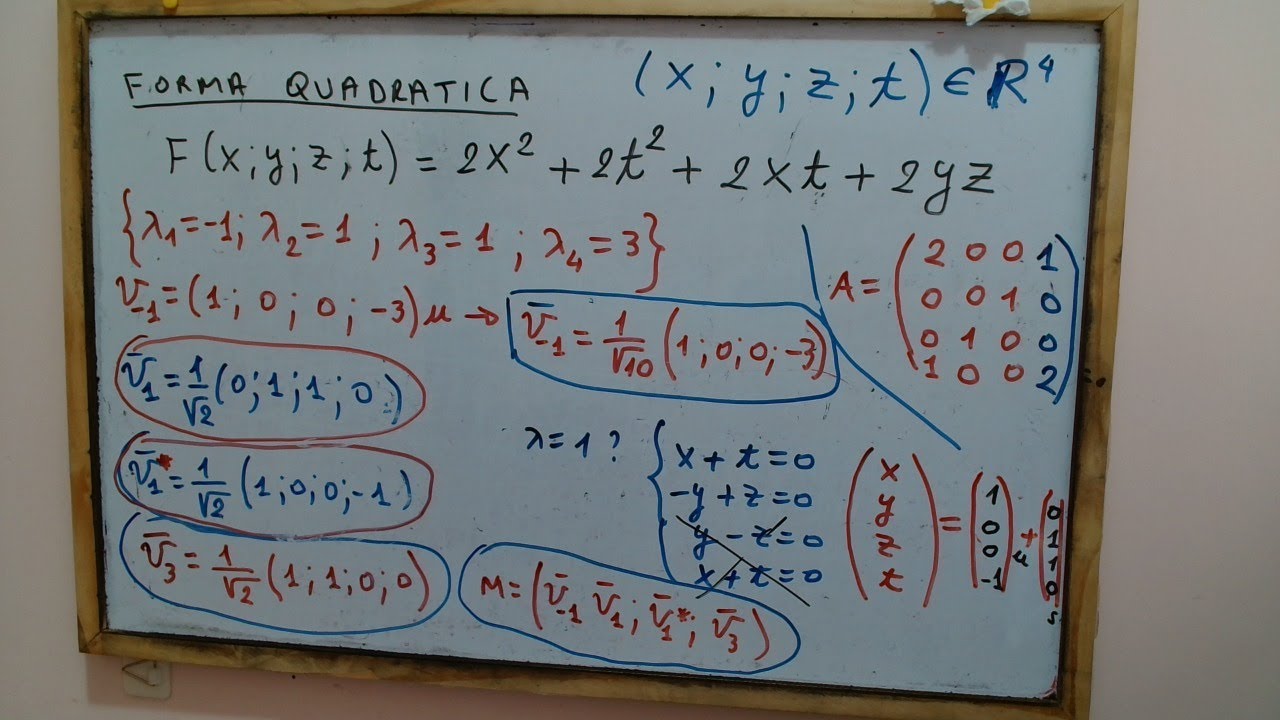 FORMA QUADRATICA
(x; y; z; t) ∈ R⁴
F(x; y; z; t) = 2x² + 2t² + 2xt + 2yz
{λ₁=-1; λ₂=1; λ₃=1; λ₄=3}
A = ( 2 0 0 1
0 0 1 0
0 1 0 0
1 0 0 2 )
V₋₁ = (1; 0; 0; -3)μ → V̄₋₁ = 1/√10 (1; 0; 0; -3)
V̄₁ = 1/√2 (0; 1; 1; 0)
V̄₁* = 1/√2 (1; 0; 0; -1)
V̄₃ = 1/√2 (1; 1; 0; 0)
λ=1? { x + t = 0
-y + z = 0
y - z = 0
x + t = 0
(x y z t) = (1 0 0 -1)μ + (0 1 1 0)s
M = (V̄₋₁ V̄₁; V̄₁*; V̄₃)